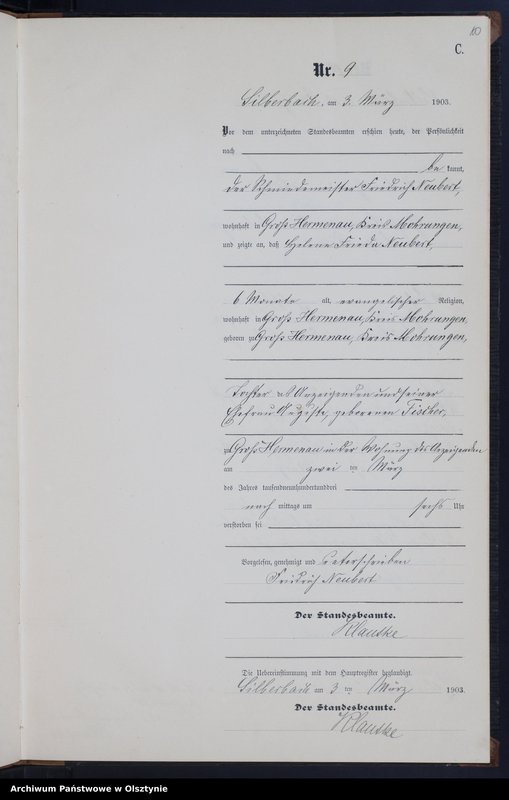 10
C.
Nr. 9
Silberbach, am 3. März 1903.
Vor dem unterzeichneten Standesbeamten erschien heute, der Persönlichkeit
nach
be kannt,
der Schmiedemeister Friedrich Neubert,
wohnhaft in Groß Hermenau, Kreis Mohrungen,
und zeigte an, daß Helene Frieda Neubert,
6 Monate alt, evangelischer Religion,
wohnhaft in Groß Hermenau, Kreis Mohrungen,
geboren zu Groß Hermenau, Kreis Mohrungen,
Tochter des Anzeigenden und seiner
Ehefrau Auguste, geborenen Tischer,
zu Groß Hermenau in der Wohnung des Anzeigenden
am zwei ten März
des Jahres tausendneunhundertunddrei
nach mittags um sechs Uhr
verstorben sei
Vorgelesen, genehmigt und unterschrieben
Friedrich Neubert
Der Standesbeamte.
Klautke
Die Uebereinstimmung mit dem Hauptregister beglaubigt.
Silberbach am 3 ten März 1903.
Der Standesbeamte.
Klautke
Archiwum Państwowe w Olsztynie